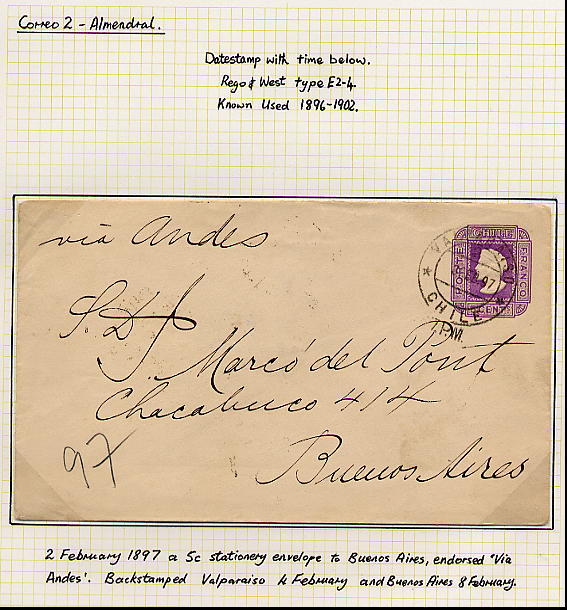 Correo 2 - Almendral.
Datestamp with time below.
Rego & West type E2-4.
Known Used 1896-1902.
via Andes
CHILE
PORTE
FRANCO
CHILE
1 P.M.
S. D.
J. Marcó del Pont
Chacabuco 414
Buenos Aires
97
2 February 1897 a 5c stationery envelope to Buenos Aires, endorsed 'Via
Andes'. Backstamped Valparaiso 4 February and Buenos Aires 8 February.